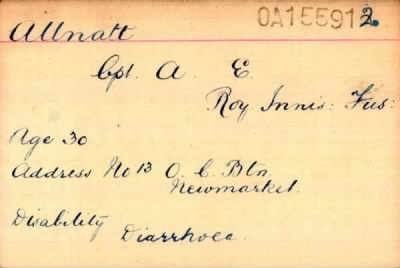 OA155912
Allnatt
Cpt. A. E.
Roy Innis: Fus:
Age 30
Address No 13 O. C. Btn
Newmarket.
Disability
Diarrhoea